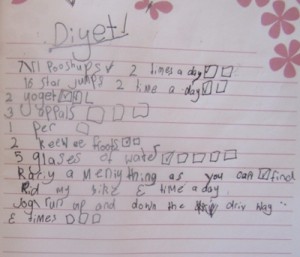 Diyet!
Pooshups 2 times a day
16 Star jumps 2 time a day
2 yoget
3 appols
1 per
2 froots
5 glases of water
as you can find
my bike & time a day
Jog run up and down the driv way
& times